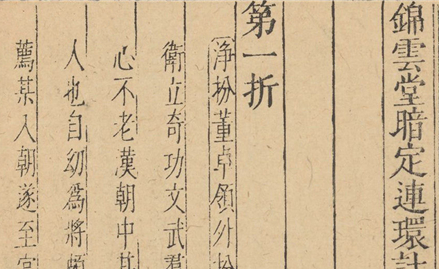 錦雲堂暗定連環計
第一折
淨扮董卓領外扮
衛立奇功文武
心不老漢朝中
人也自幼爲將
薦某入朝遂至